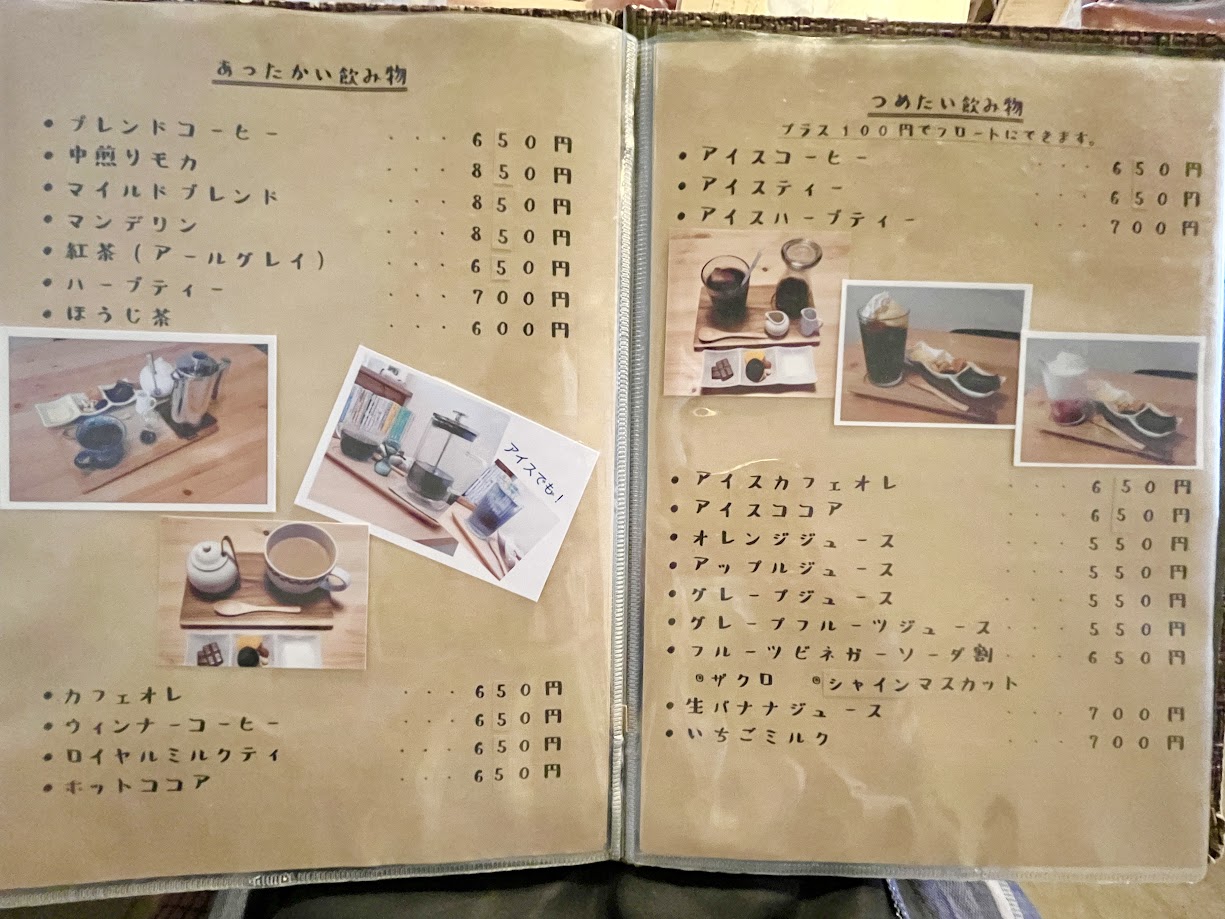 あったかい飲み物
●ブレンドコーヒー ・・・650円
●中煎りモカ ・・・850円
●マイルドブレンド ・・・850円
●マンデリン ・・・850円
●紅茶(アールグレイ) ・・・650円
●ハーブティー ・・・700円
●ほうじ茶 ・・・600円
アイスでも!
●カフェオレ ・・・650円
●ウィンナーコーヒー ・・・650円
●ロイヤルミルクティ ・・・650円
●ホットココア ・・・650円
つめたい飲み物
プラス100円でフロートにできます。
●アイスコーヒー ・・・650円
●アイスティー ・・・650円
●アイスハーブティー ・・・700円
●アイスカフェオレ ・・・650円
●アイスココア ・・・650円
●オレンジジュース ・・・550円
●アップルジュース ・・・550円
●グレープジュース ・・・550円
●グレープフルーツジュース・・・550円
●フルーツビネガーソーダ割・・・650円
◎ザクロ ◎シャインマスカット
●生バナナジュース ・・・700円
●いちごミルク ・・・700円